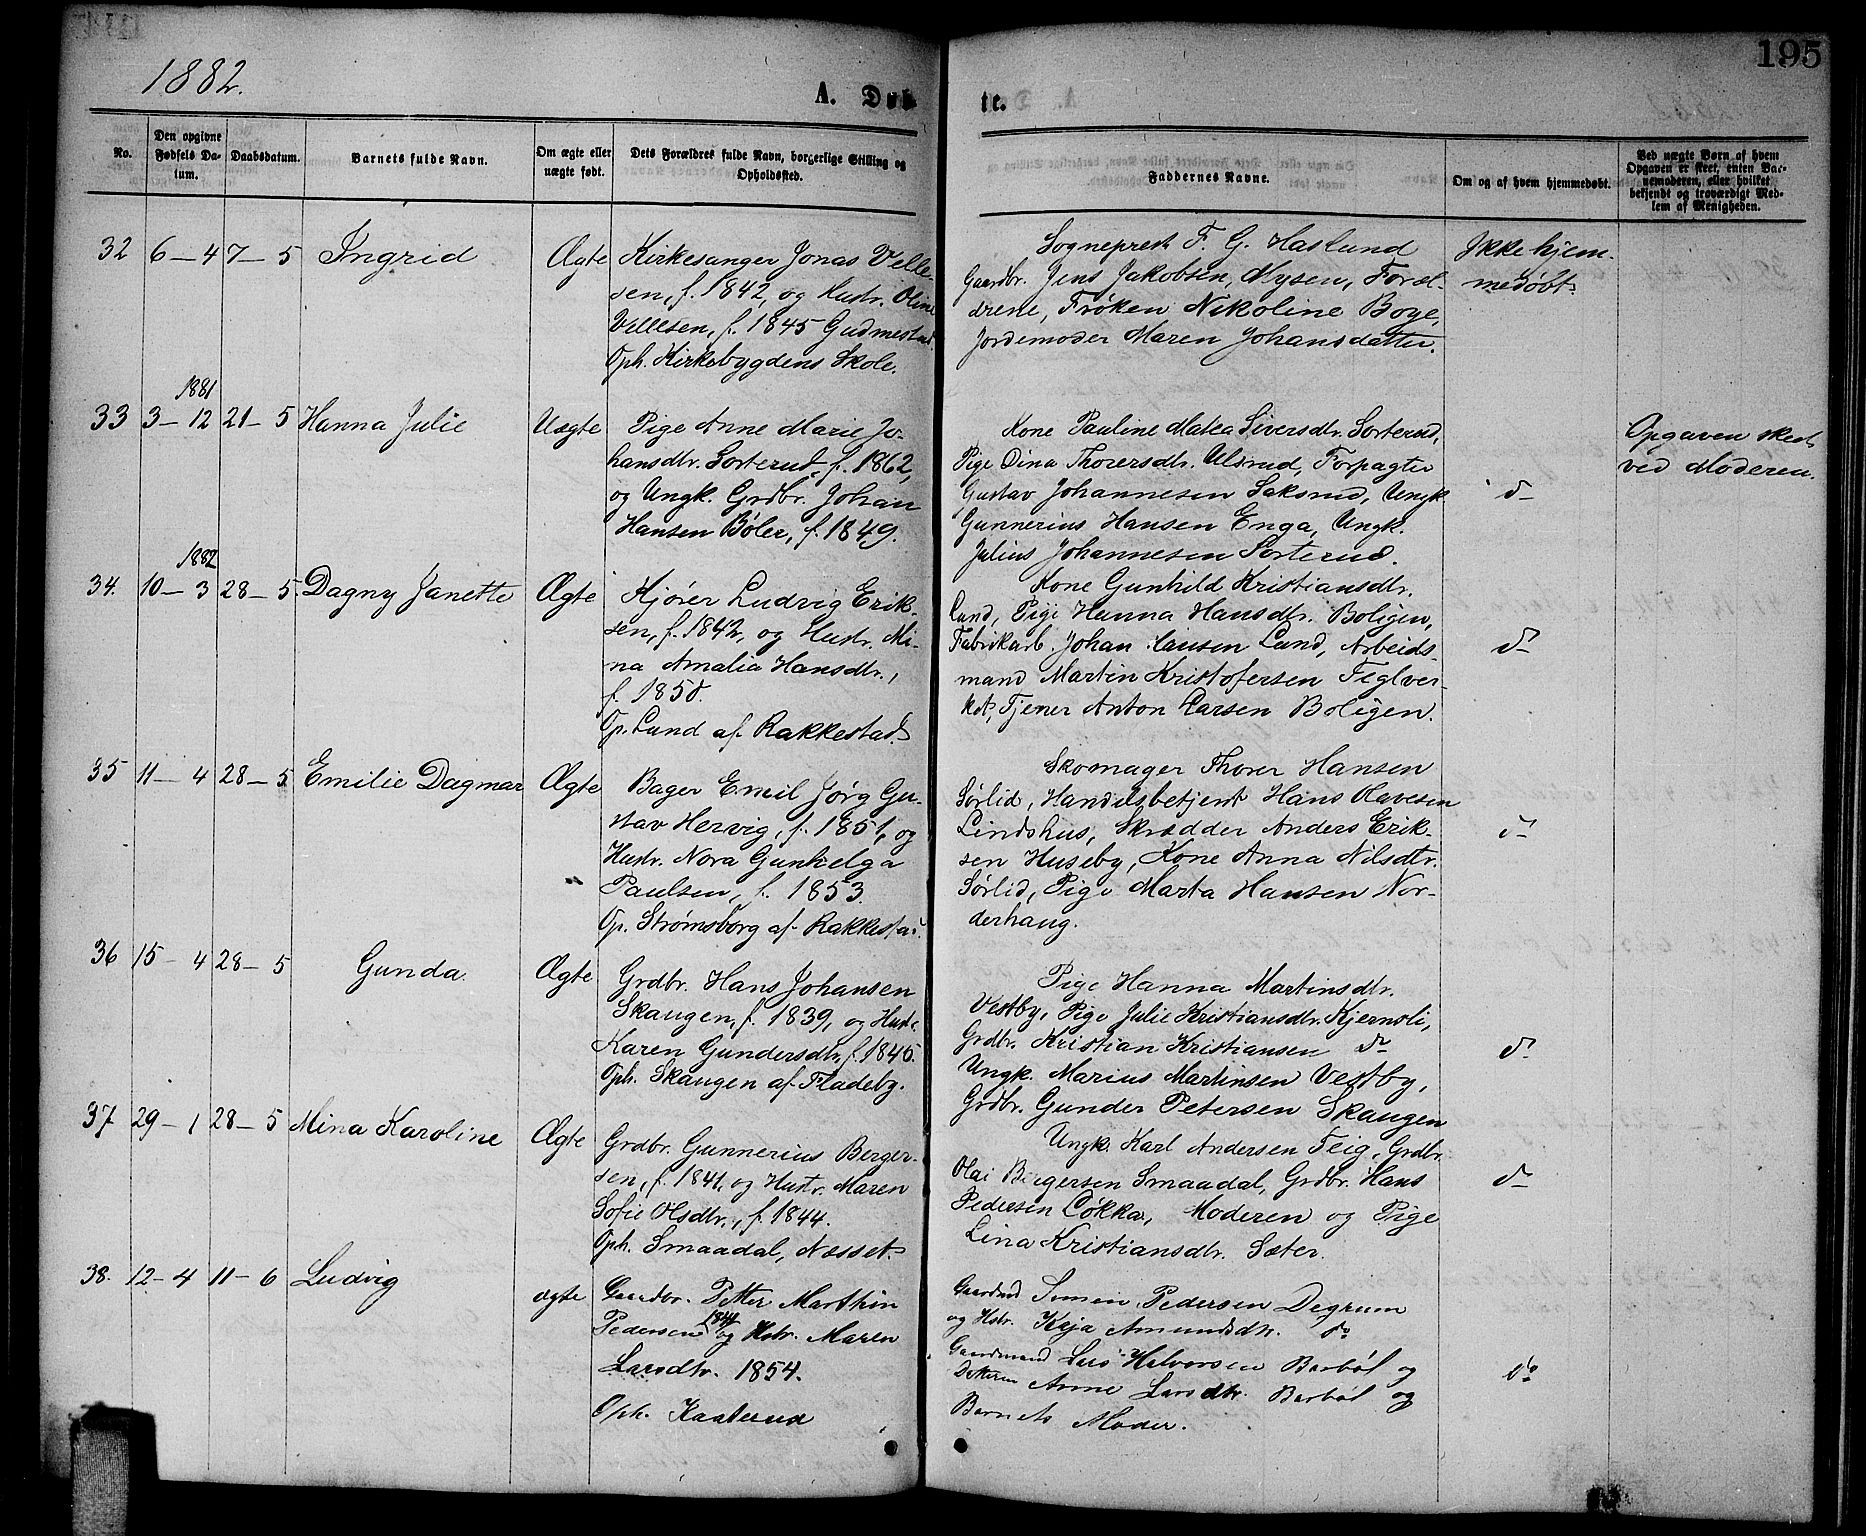 195
1882.
A. Døb
te.
No.
Den opgivne Fødsels Datum.
Daabsdatum.
Barnets fulde Navn.
Om ægte eller uægte født.
Dets Forældres fulde Navn, borgerlige Stilling og Opholdssted.
Faddernes Navne.
Om og af hvem hjemmedøbt.
Ved uægte Børn af hvem Opgaven er skeet, enten Barnemoderen, eller hvilket bekjendt og troværdigt Medlem af Menigheden.
32 6–4 7–5 Ingrid Ægte
Kirkesanger Jonas Velle-
sen, f. 1842, og Hustr. Oline
Villesen, f. 1845 Gudmestad.
Oph. Kirkebygdens Skole.
Sogneprest F. G. Haslund
Gaardbr. Jens Jakobsen, Mysen, Foræl-
drene, Frøken Nikoline Boye,
Jordemoder Maren Johansdatter.
Ikke hjem-
medøbt.
1881
33 3–12 21–5 Hanna Julie Uægte
Pige Anne Marie Jo-
hansdtr. Sorterud, f. 1862,
og Ungk. Grdbr. Johan
Hansen Bøler, f. 1849.
Kone Pauline Matea Siversdtr. Sorterud,
Pige Dina Thorersdtr. Ulsrud, Forpagter
Gustav Johannesen Saksrud, Ungk.
Gunnerius Hansen Enga, Ungk.
Julius Johannesen Sorterud.
do
Opgaven skeet
ved Moderen.
1882
34. 10–3 28–5. Dagny Janette Ægte
Kjører Ludvig Erik-
sen, f. 1842, og Hustr. Mi-
na Amalia Hansdtr.,
f. 1850.
Op. Lund af Rakkestad.
Kone Gunhild Kristiansdtr.
Lund, Pige Hanna Hansdtr. Boligen,
Fabrikarb. Johan Hansen Lund, Arbeids-
mand Martin Kristofersen Teglver-
ket, Tjener Anton Larsen Boligen.
do
35 11–4 28–5 Emilie Dagmar Ægte
Bager Emil Jørg Gu-
stav Hervig, f. 1851, og
Hustr. Nora Gunhelga
Paulsen, f. 1853.
Op. Strømsborg af Rakkestad.
Skomager Thorer Hansen
Sørlid, Handelsbetjent Hans Olavesen
Lindshus, Skrædder Anders Erik-
sen Huseby, Kone Anna Nilsdtr.
Sørlid, Pige Marta Hansen Nor-
derhaug.
do
36 15–4 28–5 Gunda. Ægte
Grdbr. Hans Johansen
Skaugen, f. 1839, og Hustr.
Karen Gundersdtr, f. 1845.
Oph. Skaugen af Fladeby.
Pige Hanna Martinsdtr.
Vestby, Pige Julie Kristiansdtr. Kjernsli,
Grdbr. Kristian Kristiansen do
Ungk. Marius Martinsen Vestby,
Grdbr. Gunder Petersen Skaugen
do
37 29–1 28–5 Mina Karoline Ægte
Grdbr. Gunnerius Berger-
sen, f. 1841, og Hustr. Maren
Sofie Olsdtr., f. 1844.
Oph. Smaadal, Næsset.
Ungk. Karl Andersen Teig, Grdbr.
Olai Bergersen Smaadal, Grdbr. Hans
Pedersen Løkka, Moderen og Pige
Lina Kristiansdtr. Sæter.
do
38. 12–4 11–6 Ludvig ægte
Gaardbr. Petter Marthin
Pedersen 1841 og Hstr. Maren
Larsdtr. 1854.
Oph. Kaaterud
Gaardmd Simen Pedersen Degrum
og Hstr. Kaja Amundsdtr. do
Gaardmand Lars Halvorsen Barbøl og
Datteren Anne Larsdtr. Barbøl og
Barnets Moder.
do